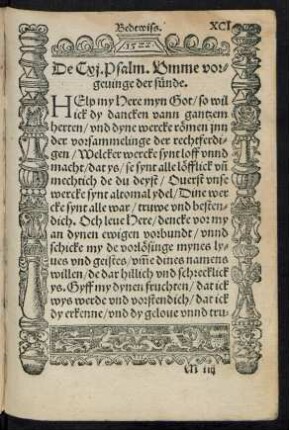 Bedewiss. XCI
1522
De Cxj. Psalm. Umme vor-
geuinge der sünde.
HElp my Here myn Got/ so wil
ick dy dancken vann gantzem
herten/ vnd dyne wercke römen jnn
der vorsammelinge der rechtferdi-
gen/ Welcker wercke synt loff vnnd
macht/ dat ys/ se synt alle löfflick vñ
mechtich de du deyst/ Ouerst vnse
wercke synt altomal ydel/ Dine wer
cke synt alle war/ truwe vnd besten-
dich. Och leue Here/ dencke vor my
an dynen ewigen vorbundt/ vnnd
schicke my de vorlösinge mynes ly-
ues vnd geistes/ vm̃e dines namens
willen/ de dar hillich vnd schrecklick
ys. Gyff my dynen fruchten/ dat ick
wys werde vnd vorstendich/ dat ick
dy erkenne/ vnd dy geloue vnnd tru-
M iij